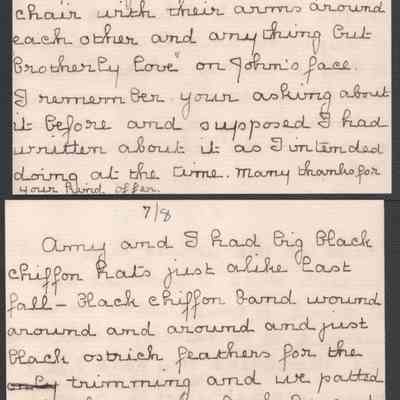 chair with their arms around
each other and anything but
brotherly love" on John's face.
I remember your asking about
it before and supposed I had
written about it as I intended
doing at the time. Many thanks for
your kind offer.
7/8
Amy and I had big black
chiffon hats just alike last
fall - black chiffon band wound
around and around and just
black ostrich feathers for the
only trimming and we patted